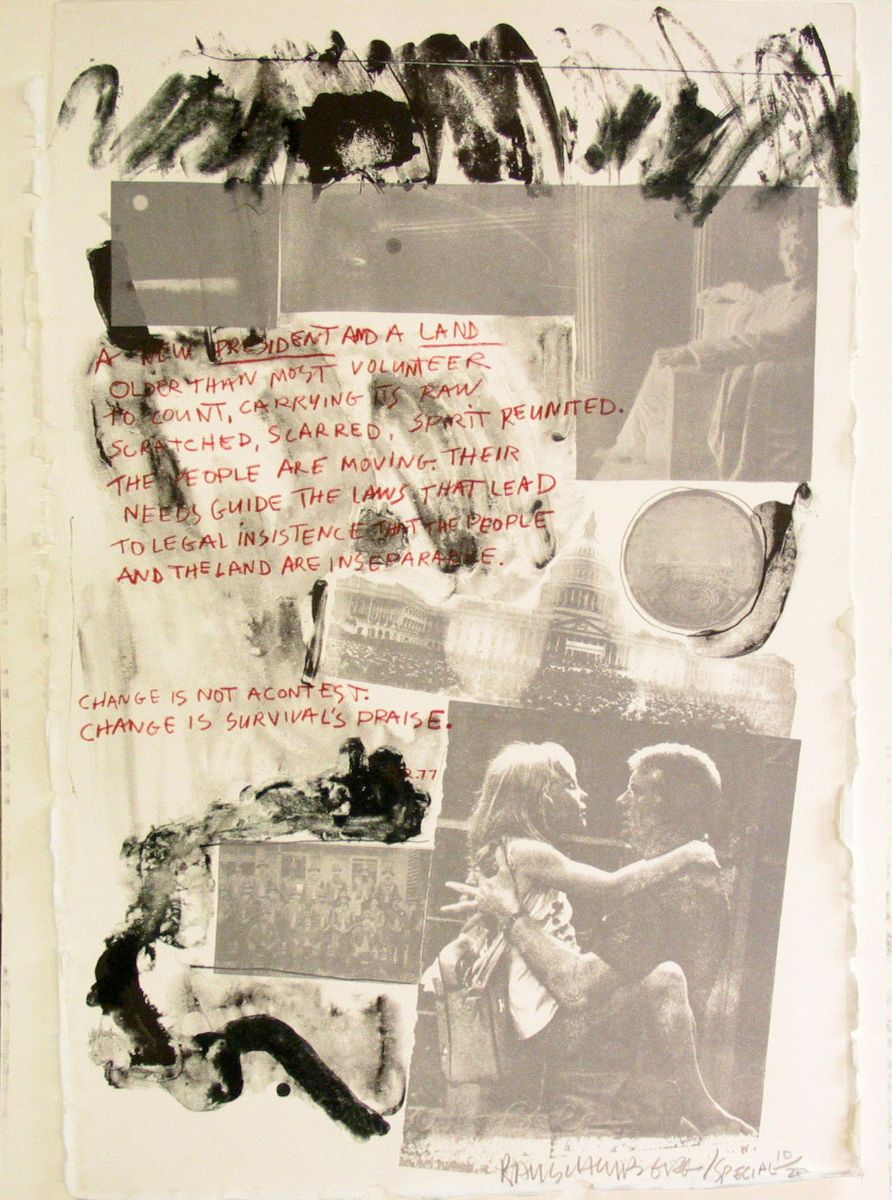 A NEW PRESIDENT AND A LAND
OLDER THAN MOST VOLUNTEER
TO COUNT, CARRYING ITS RAW
SCRATCHED, SCARRED, SPIRIT REUNITED.
THE PEOPLE ARE MOVING. THEIR
NEEDS GUIDE THE LAWS THAT LEAD
TO LEGAL INSISTENCE THAT THE PEOPLE
AND THE LAND ARE INSEPARABLE.
CHANGE IS NOT A CONTEST.
CHANGE IS SURVIVAL'S PRAISE.
2.77
RAUSCHENBERG / SPECIAL 10/20